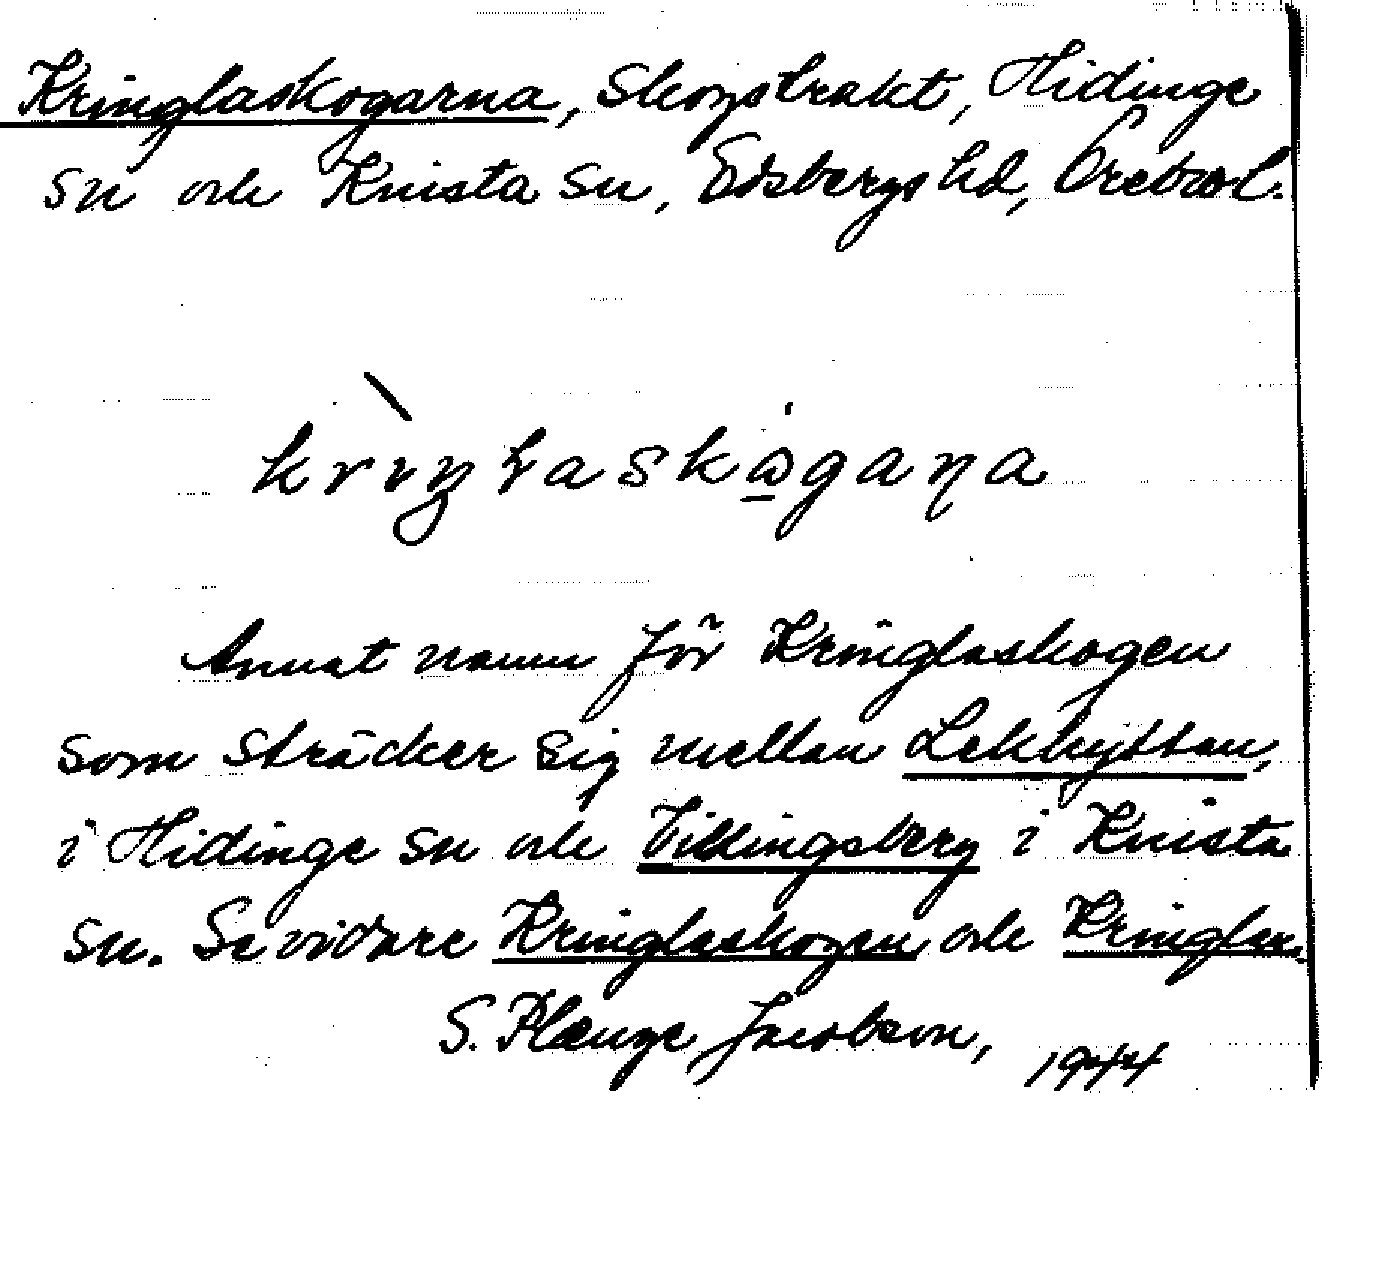 Kringlaskogarna, Skogstrakt, Hidinge
sn och Knista sn, Edsbergs hd, Örebro l.
Annat namn för Kringlaskogen
som sträcker sig mellan Lekhyttan,
i Hidinge sn och Villingsberg i Knista
sn. Se vidare Kringlaskogen och Kringlan.
S. Plænge Jacobson,
1944